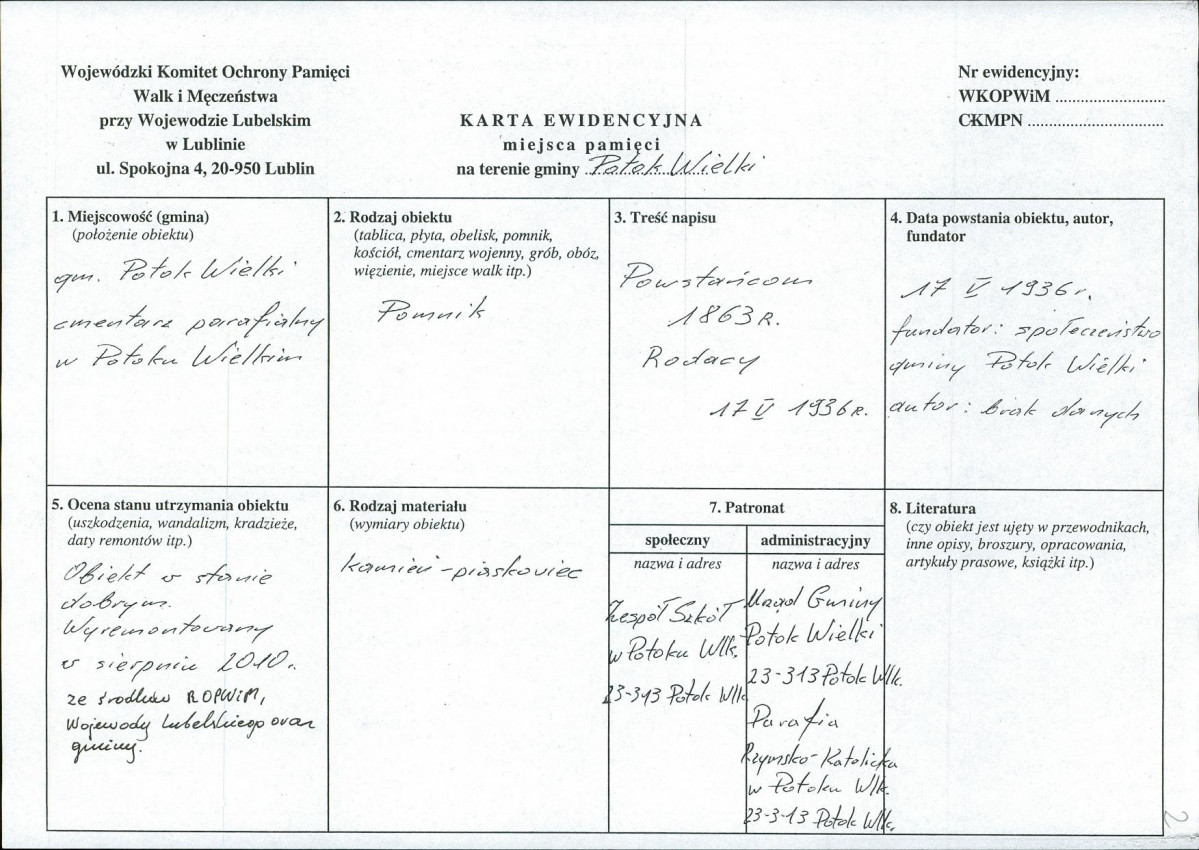 Wojewódzki Komitet Ochrony Pamięci
Walk i Męczeństwa
przy Wojewodzie Lubelskim
w Lublinie
ul. Spokojna 4, 20-950 Lublin
KARTA EWIDENCYJNA
miejsca pamięci
na terenie gminy Potok Wielki
Nr ewidencyjny:
WKOPWiM ..........................
CKMPN ................................
1. Miejscowość (gmina)
(położenie obiektu)
gm. Potok Wielki
cmentarz parafialny
w Potoku Wielkim
2. Rodzaj obiektu
(tablica, płyta, obelisk, pomnik,
kościół, cmentarz wojenny, grób, obóz,
więzienie, miejsce walk itp.)
Pomnik
3. Treść napisu
Powstańcom
1863 R.
Rodacy
17 V 1936 R.
4. Data powstania obiektu, autor,
fundator
17 V 1936 r.
fundator: społeczeństwo
gminy Potok Wielki
autor: brak danych
5. Ocena stanu utrzymania obiektu
(uszkodzenia, wandalizm, kradzieże,
daty remontów itp.)
Obiekt w stanie
dobrym.
Wyremontowany
w sierpniu 2010 r.
ze środków ROPWiM,
Wojewody Lubelskiego oraz
gminy.
6. Rodzaj materiału
(wymiary obiektu)
kamień - piaskowiec
7. Patronat
społeczny
nazwa i adres
Zespół Szkół
w Potoku Wlk.
23-313 Potok Wlk
administracyjny
nazwa i adres
Urząd Gminy
Potok Wielki
23-313 Potok Wlk.
Parafia
Rzymsko-Katolicka
w Potoku Wlk.
23-3-13 Potok Wlk.
8. Literatura
(czy obiekt jest ujęty w przewodnikach,
inne opisy, broszury, opracowania,
artykuły prasowe, książki itp.)
2